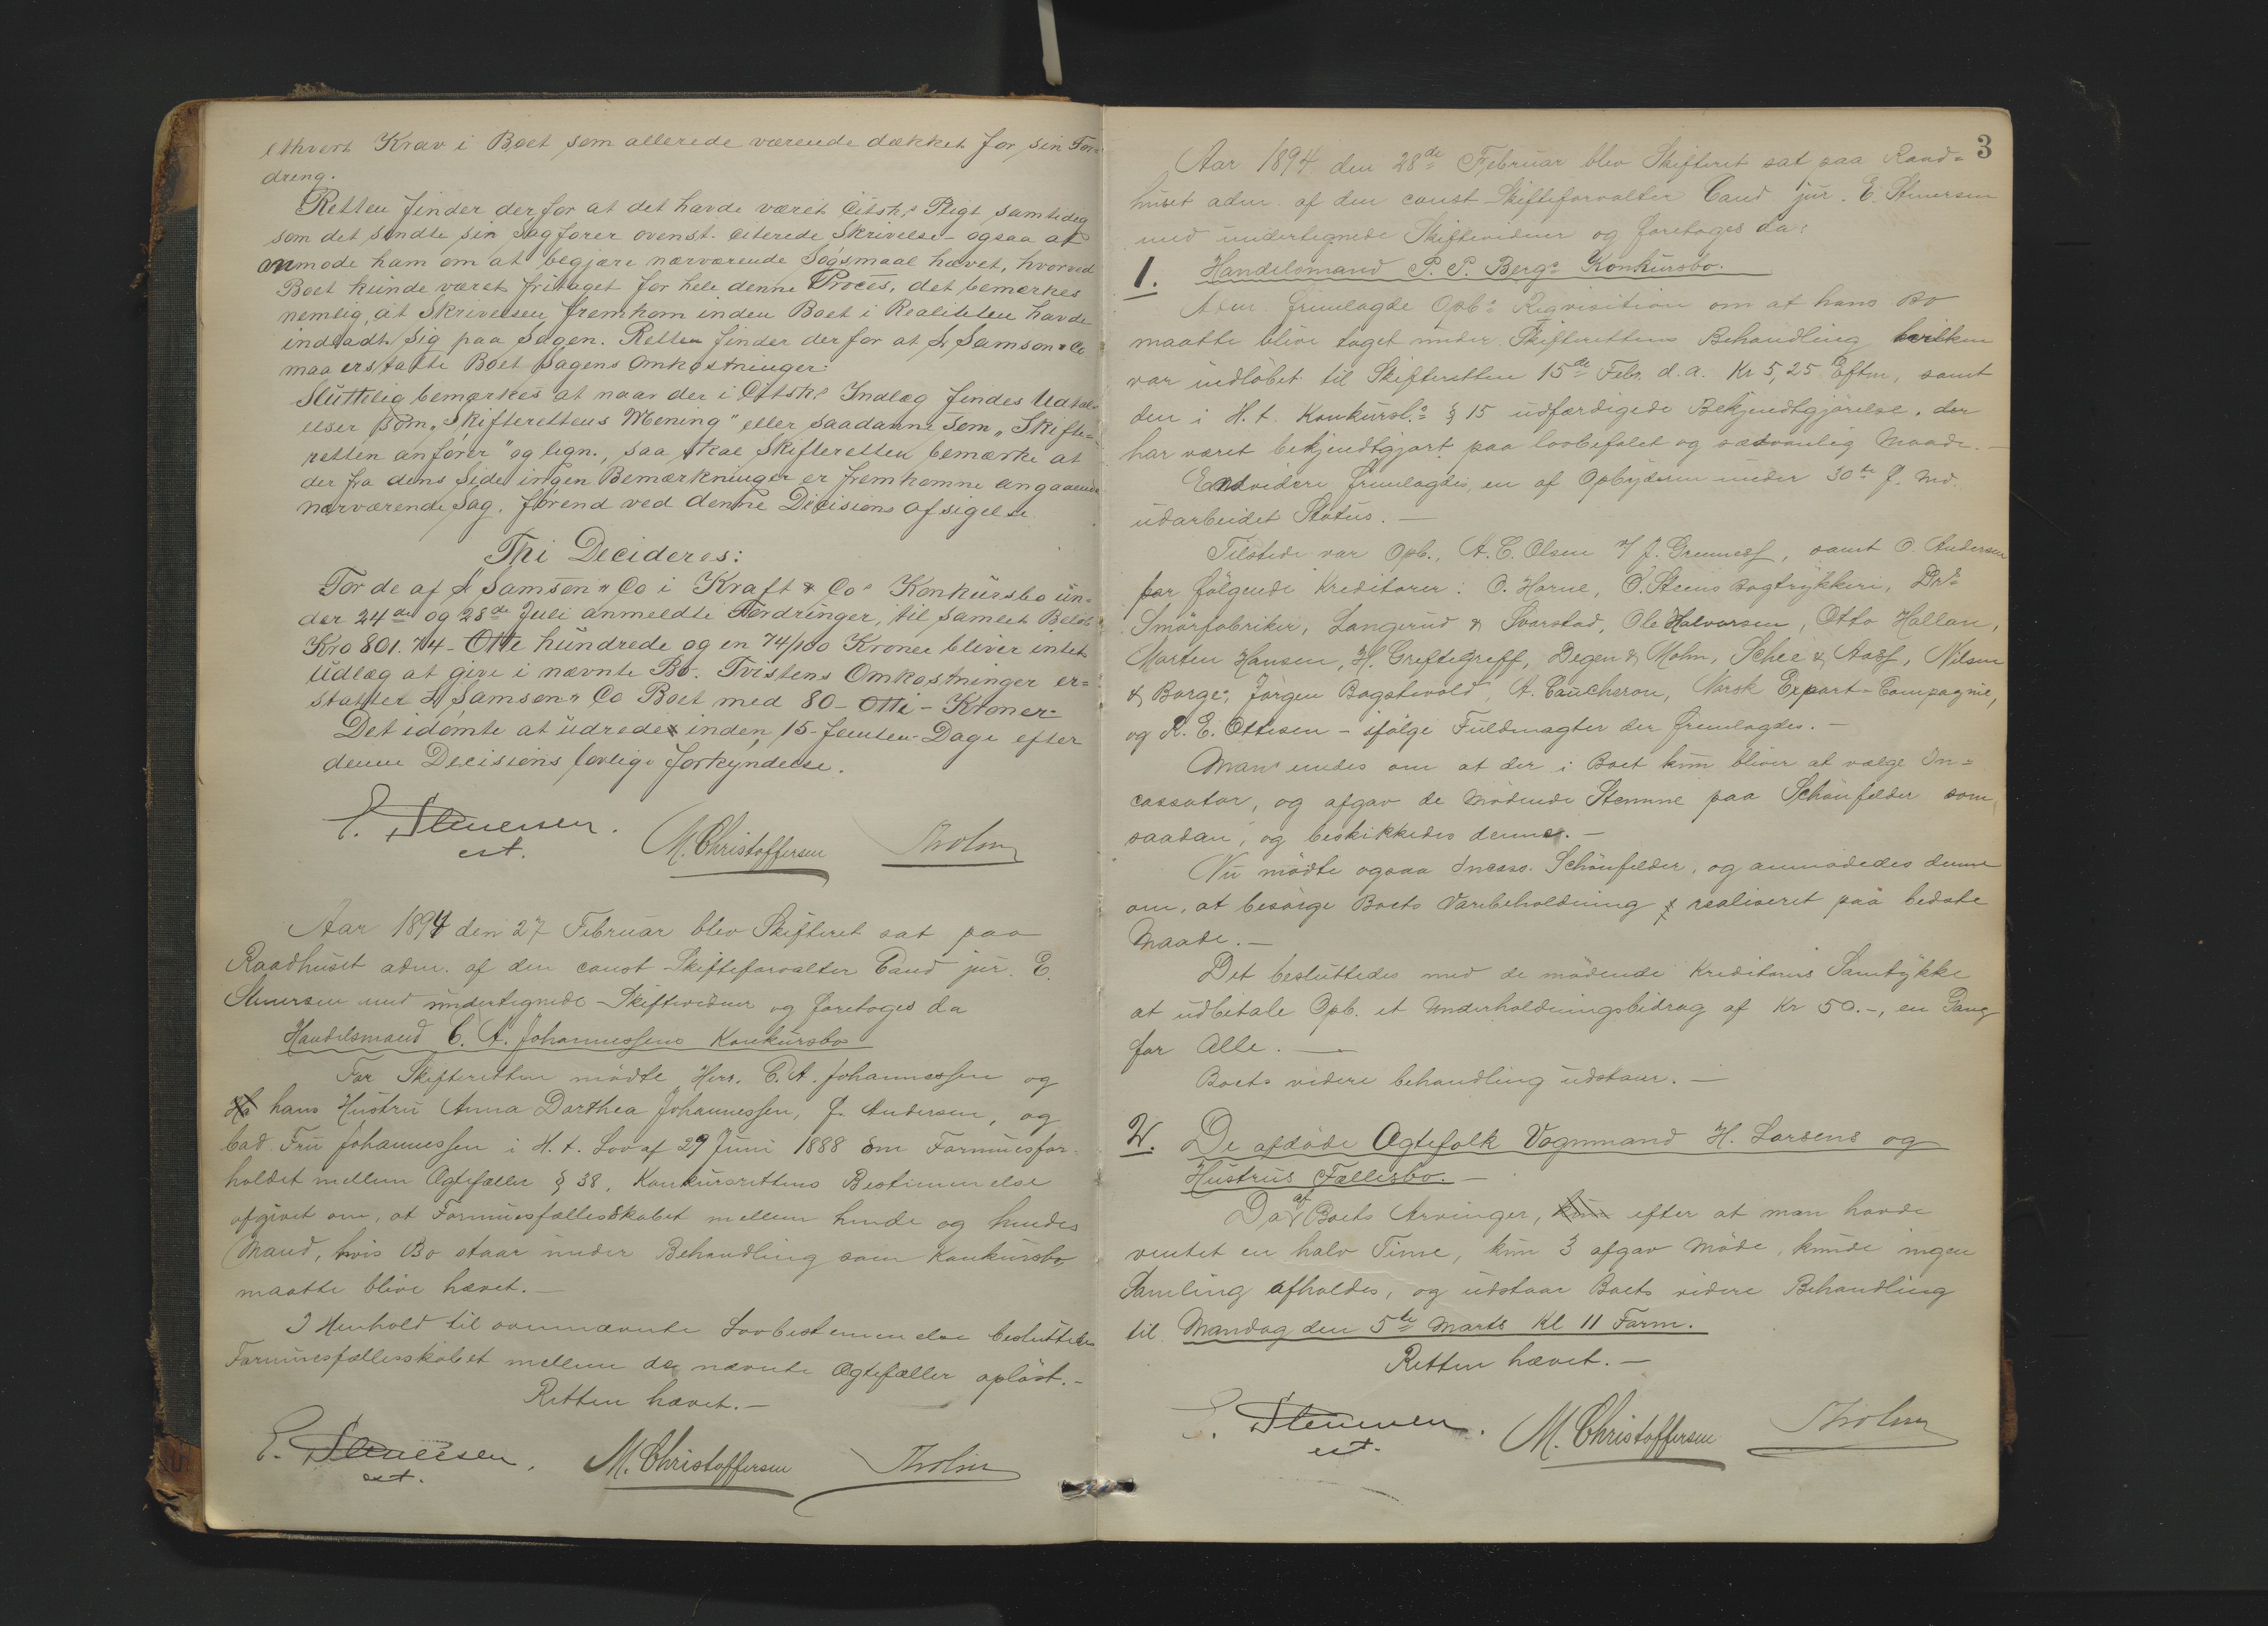 ethvert Krav i Boet som allerede værende dækket for sin For-
dring.
Retten finder derfor at det havde været Citstk.s Pligt samtidig
som det sendte sin Sagfører ovenst. citerede Skrivelse - ogsaa at
anmode ham om at begjære nærværende Søgsmaal hævet, hvorved
Boet kunde været fritaget for hele denne Proces, det bemærkes
nemlig, at Skrivelsen fremkom inden Boet i Realiteten havde
indladt sig paa Sagen. Retten finder derfor at S. Samson & Co
maa erstatte Boet Sagens Omkostninger.
Sluttelig bemærkes at naar der i Citstk.s Indlæg findes Udtal-
elser som „Skifterettens Mening" eller saadanne som „Skifte-
retten anfører" og lign., saa skal Skifteretten bemærke at
der fra dens Side ingen Bemærkninger er fremkomne angaaende
nærværende Sag, førend ved denne Decisions afsigelse.
Thi Decideres:
For de af S. Samson & Co i Kraft & Co.s Konkursbo un-
der 24de og 28de Juli anmeldte Fordringer, til samlet Beløb
Kro 801.74 - Otte hundrede og en 74/100 Kroner bliver intet
Udlæg at give i nævnte Bo. Tvistens Omkostninger er-
statter S. Samson & Co Boet med 80 - Otti - Kroner.
Det idømte at udrede inden 15 - femten - Dage efter
denne Decisions lovlige forkyndelse.
E. Stenersen.
cst.
M. Christoffersen
Tholm
Aar 1894 den 27 Februar blev Skifteret sat paa
Raadhuset adm. af den const Skifteforvalter Cand jur. E.
Stenersen med undertegnede Skiftevidner og foretoges da
Handelsmand C. A. Johannessens Konkursbo
For Skifteretten mødte Herr. C. A. Johannessen og
hans Hustru Anna Dorthea Johannessen, f. Andersen, og
bad Fru Johannessen i H. t. Lov af 29 Juni 1888 om Formuesfor-
holdet mellem Ægtefæller § 38, Konkursrettens Bestemmelse
afgivet om, at Formuesfællesskabet mellem hende og hendes
Mand, hvis Bo staar under Behandling som Konkursbo,
maatte blive hævet. —
I Henhold til ovennævnte Lovbestemmelse besluttedes
Formuesfællesskabet mellem de nævnte Ægtefæller opløst. -
Retten hævet. —
E. Stenersen.
cst.
M. Christoffersen
Tholm
3
Aar 1894 den 28de Februar blev Skifteret sat paa Raad-
huset adm. af den const Skifteforvalter Cand jur. E. Stenersen
med undertegnede Skiftevidner og foretoges da:
1. Handelsmand P. P. Bergs Konkursbo.
Adm. fremlagde Opb.s Reqvisition om at hans Bo
maatte blive taget under Skifterettens Behandling hvilken
var indløbet til Skifteretten 15de Febr. d. a. Kr 5,25 Eftm, samt
den i H. t. Konkursl.s § 15 udfærdigede Bekjendtgjørelse, der
har været bekjendtgjort paa lovbefalet og sædvanlig Maade. —
Endvidere fremlagdes en af Opbyderen under 30te f. Md.
udarbeidet Status. —
Tilstede var Opb., A. C. Olsen f/ J. Grennesf, samt O. Andersen
for følgende Kreditorer: O. Horne, O. Steens Bogtrykkeri, Dr.s
Smørfabriker, Langerud & Svarstad, Ole Halvorsen, Otto Hallan,
Morten Hansen, H. Greftegreff, Degen & Mohn, Schee & Aass, Nilsen
& Borge, Jørgen Bogstevold, A. Caucheron, Norsk Export-Compagnie,
og R. E. Ottesen - ifølge Fuldmagter der fremlagdes. —
Man enedes om at der i Boet kun bliver at vælge In-
cassator, og afgav de Mødende Stemme paa Schönfelder som
saadan, og beskikkedes denne. —
Nu mødte ogsaa Incass. Schönfelder, og anmodedes denne
om, at besørge Boets Varebeholdning realiseret paa bedste
Maade. —
Det besluttedes med de mødende Kreditorers Samtykke
at udbetale Opb. et Underholdningsbidrag af Kr 50.-, en Gang
for Alle. —
Boets videre behandling udstaar. —
2. De afdøde Ægtefolk Vognmand H. Larsens og
Hustrus Fællesbo. —
Da af Boets Arvinger, efter at man havde
ventet en halv Time, kun 3 afgav Møde, kunde ingen
Samling afholdes, og udstaar Boets videre Behandling
til Mandag den 5te Marts Kl 11 Form.
Retten hævet. —
E. Stenersen.
cst.
M. Christoffersen
Tholm